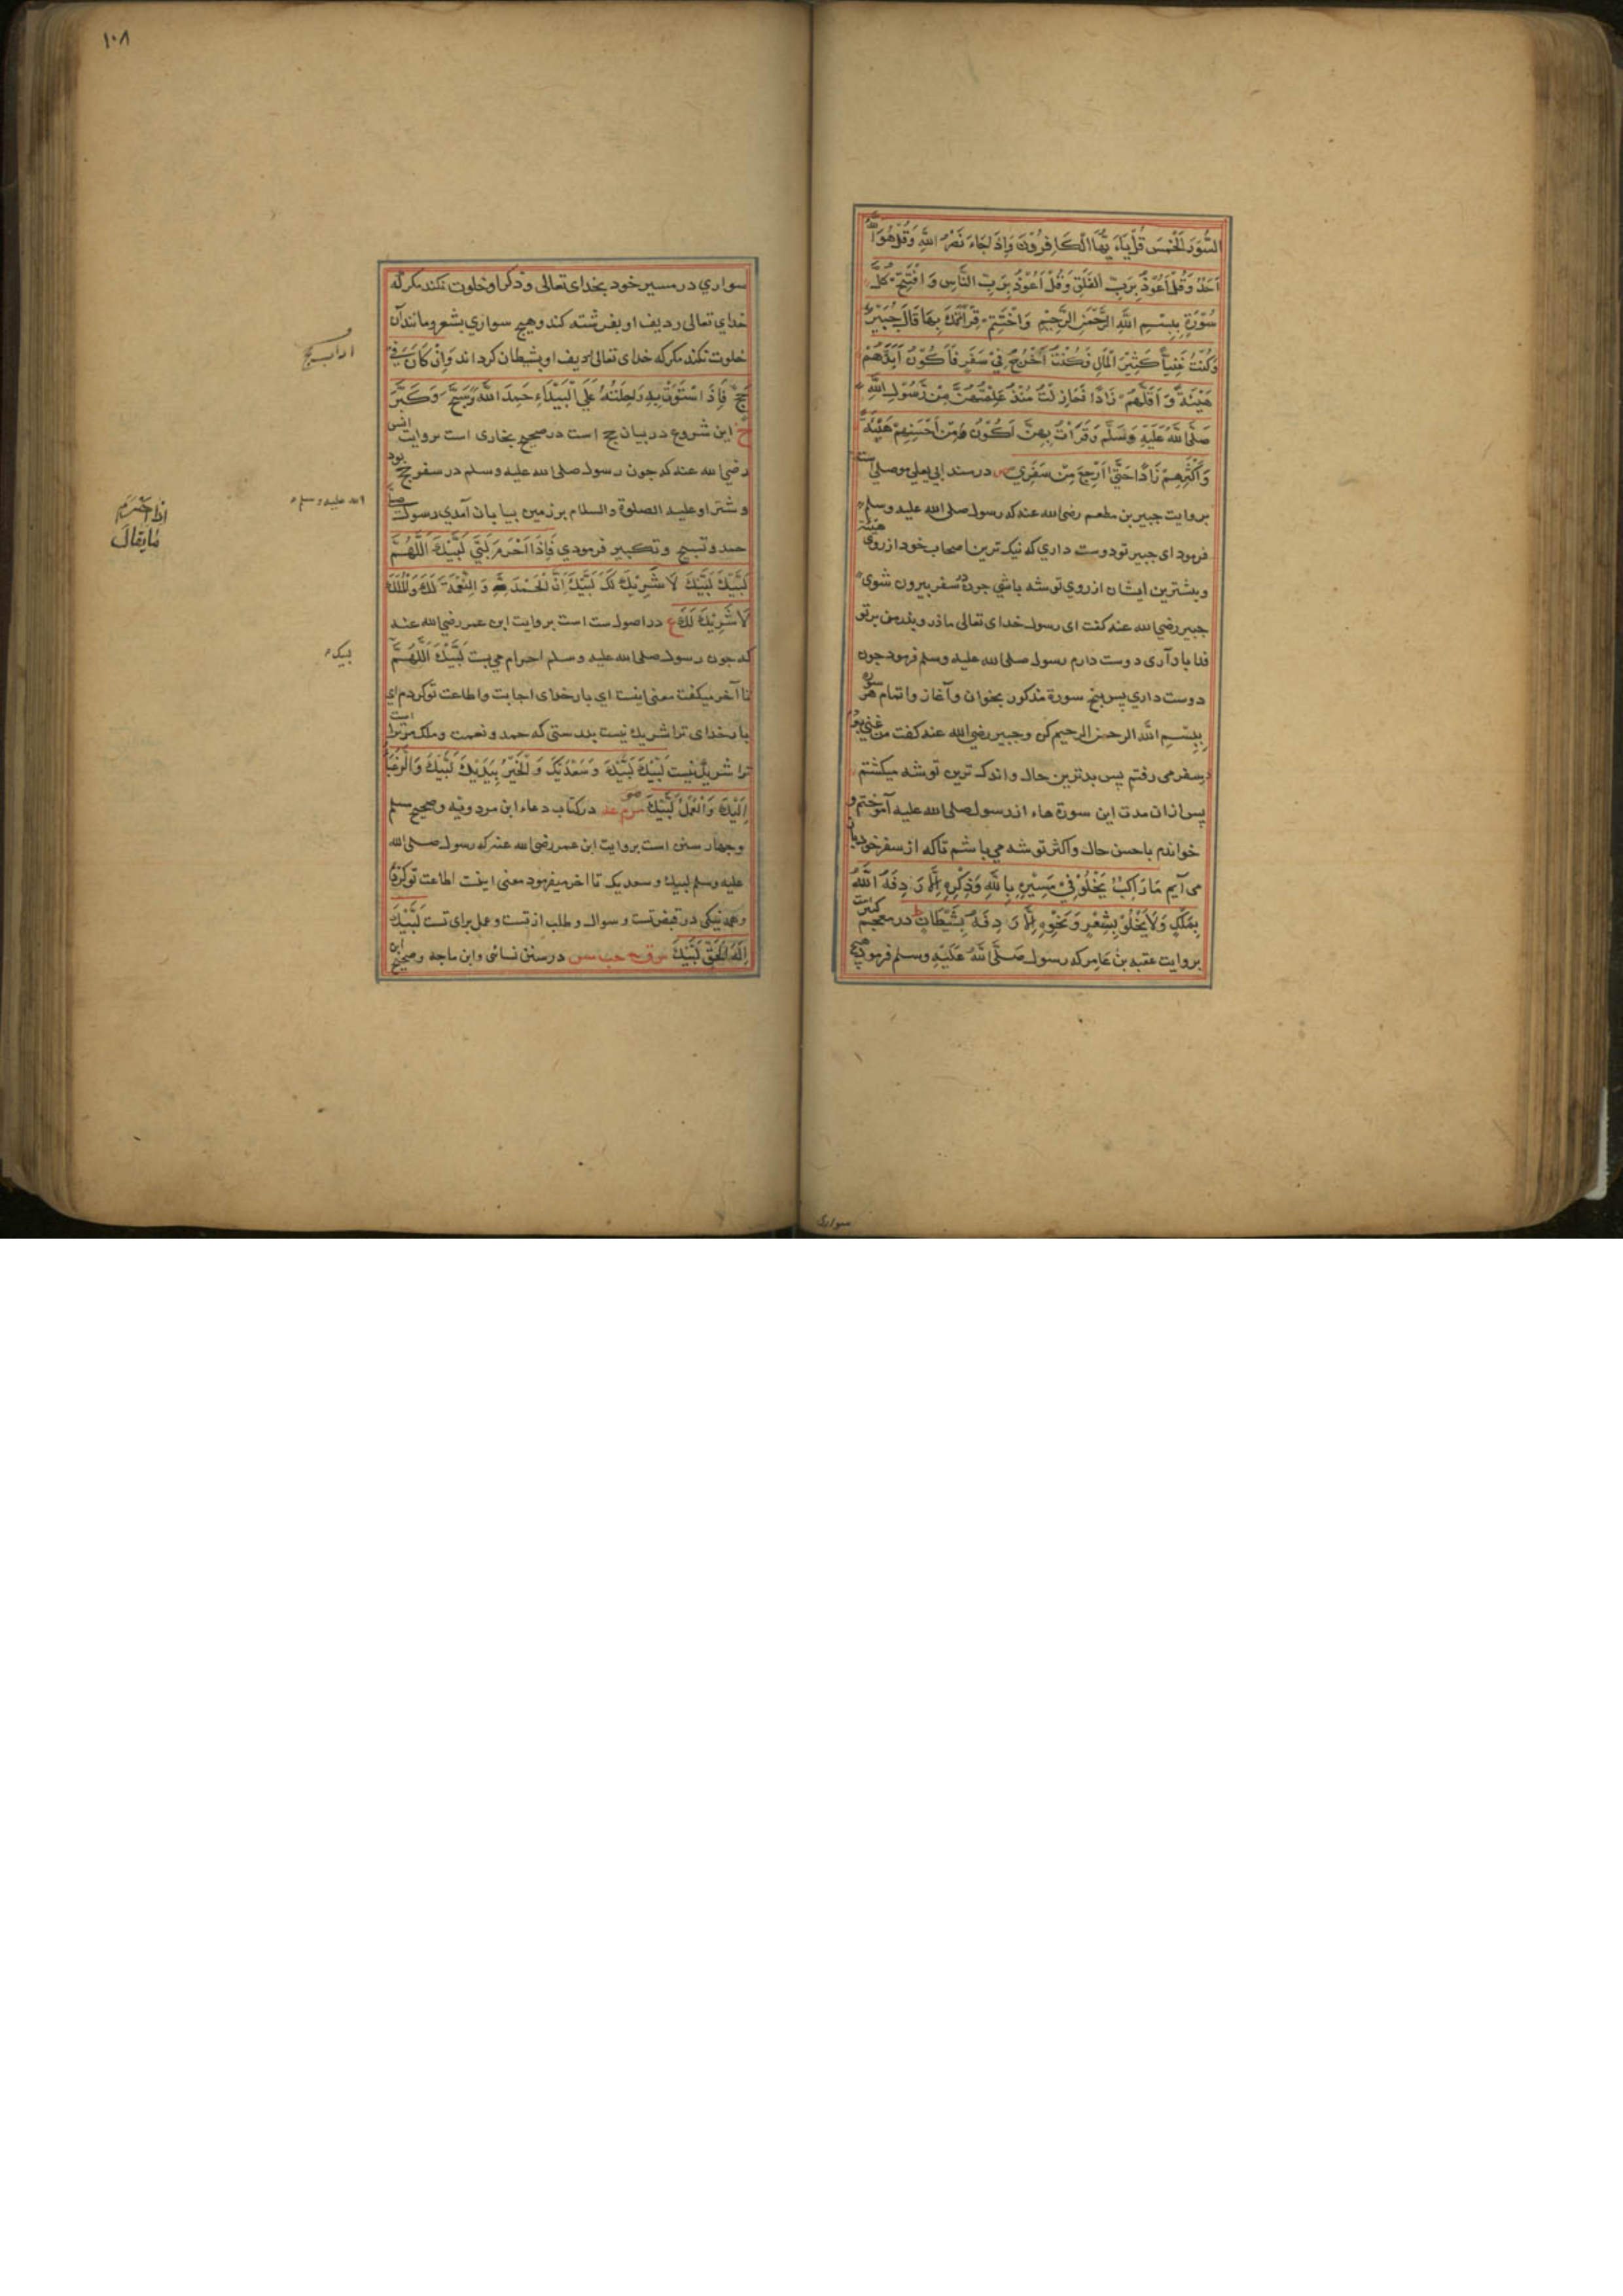 السُّوَرَ الْخَمْسَ قُلْ يَاءَ يُّهَا الْكَافِرُوْنَ وَاِذَا جَاءَ نَصْرُ اللّٰهِ وَقُلْ هُوَ اللّٰهُ
اَحَدٌ وَقُلْ اَعُوْذُ بِرَبِّ الْفَلَقِ وَقُلْ اَعُوْذُ بِرَبِّ النَّاسِ وَافْتَتِحْ كُلَّ
سُوْرَةٍ بِبِسْمِ اللّٰهِ الرَّحْمٰنِ الرَّحِيْمِ وَاخْتَتِمْ قِرْأَتَكَ بِهَا قَالَ جُبَيْرٌ
وَكُنْتُ غَنِيًّا كَثِيْرَ الْمَالِ فَكُنْتُ اَخْرُجُ فِيْ سَفَرٍ فَاَكُوْنُ اَبَذَّهُمْ
هَيْئَةً وَاَقَلَّهُمْ زَادًا فَمَا زِلْتُ مُنْذُ عَلِمْتُهُنَّ مِنْ رَّسُوْلِ اللّٰهِ
صَلَّى اللّٰهُ عَلَيْهِ وَسَلَّمَ وَقَرَأْتُ بِهِنَّ اَكُوْنُ مِنْ اَحْسَنِهِمْ هَيْئَةً
وَاَكْثَرِهِمْ زَادًا حَتّٰى اَرْجِعَ مِنْ سَفَرِيْ ص در سند ابی یعلی موصلی است
بروایت جبیر بن مطعم رضی الله عنه که رسول صلی الله علیه وسلم
فرمود ای جبیر تو دوست داری که نیک ترین اصحاب خود از روی هیئة
و بیشترین ایشان از روی توشه باشی چون سفر بیرون شوی
جبیر رضی الله عنه کفت ای رسول خدای تعالی مادر و پدر من بر تو
فدا باد آری دوست دارم رسول صلی الله علیه وسلم فرمود چون
دوست داری پس پنج سورة مذکور بخوان و آغاز و اتمام هر سوره
بِبِسْمِ اللّٰه الرحمن الرحیم کن و جبیر رضی الله عنه کفت من غنی بودم
در سفر می رفتم پس بدترین حال و اندک ترین توشه میکشتم
پس ازان مدت این سورة هاء از رسول صلی الله علیه آموختم و
خواندم باحسن حال و اکثر توشه می باشم تا که از سفر خود باز
می آیم مَا رَاكِبٌ يَخْلُوْ فِيْ مَسِيْرِهِ بِاللّٰهِ وَذِكْرِهِ اِلَّا رَدِفَهُ اللّٰهُ
بِمَلَكٍ وَلَا يَخْلُوْ بِشِعْرٍ وَنَحْوِهِ اِلَّا رَدِفَهُ بِشَيْطَانٍ ط در معجم کبیر است
بروایت عقبه بن عامر که رسول صَلَّى اللّٰهُ عَلَيْهِ وسلم فرمود هیچ
سواری
۱۰۸
سواري در مسیر خود بخدای تعالی و ذکر او خلوت نکند مکر که
خدای تعالی ردیف او بفرشته کند و هیچ سواري بشعر و مانند آن
خلوت نکند مکر که خدای تعالی ردیف او بشیطان کرداند وَاِنْ كَانَ فِيْ
حَجٍّ فَاِذَا اسْتَوَتْ بِهِ رَاحِلَتُهُ عَلَى الْبَيْدَاءِ حَمِدَ اللّٰهَ وَسَبَّحَ وَكَبَّرَ
خ این شروع در بیان حج است در صحیح بخاری است بروایت انس
رضی الله عنه که چون رسول صلی الله علیه وسلم در سفر حج بود
و شتر او علیه الصلوة والسلام بر زمین بیابان آمدی رسول صلی
الله علیه وسلم
حمد و تسبیح و تکبیر فرمودی فَاِذَا اَحْرَمَ لَبّٰى لَبَّيْكَ اَللّٰهُمَّ
لَبَّيْكَ لَبَّيْكَ لَا شَرِيْكَ لَكَ لَبَّيْكَ اِنَّ الْحَمْدَ وَالنِّعْمَةَ لَكَ وَالْمُلْكَ
لَا شَرِيْكَ لَكَ ع در اصول ست است بروایت ابن عمر رضی الله عنه
که چون رسول صلی الله علیه وسلم احرام می بست لَبَّيْكَ اَللّٰهُمَّ
لبیک
تا آخر میکفت معنی اینست ای بار خدای اجابت و اطاعت تو کردم ای
بار خدای ترا شریک نیست بدرستی که حمد و نعمت و ملک مر ترا است
ترا شریک نیست لَبَّيْكَ لَبَّيْكَ وَسَعْدَيْكَ وَالْخَيْرُ بِيَدَيْكَ لَبَّيْكَ وَالرَّغْبَاءُ
اِلَيْكَ وَالْعَمَلُ لَبَّيْكَ در کتاب دعاء ابن مردویه و صحیح مسلم
و چهار سنن است بروایت ابن عمر رضی الله عنه که رسول صلی الله
علیه وسلم لبیک و سعدیک تا اخر میفرمود معنی اینست اطاعت تو کردم
و همه نیکی در قبض تست و سوال و طلب از تست و عمل برای تست لَبَّيْكَ
اِلٰهَ الْحَقِّ لَبَّيْكَ س ق حب مس در سنن نسائی و ابن ماجه و صحیح ابن
اداب حج
اذا احرم
ما یقال